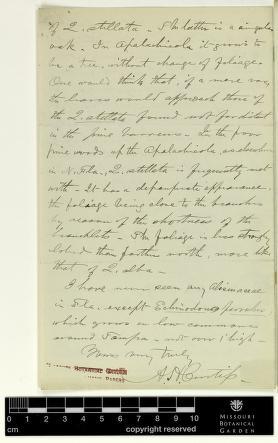 of Q. stellata - The latter is a singular
oak. In Apalachicola it grows to
be a tree, without change of foliage.
One would think that, if a mere var.,
the leaves would approach those of
the Q. stellata found not far distant
in the pine barrens. In the poor
pine woods up the Apalachicola, as elsewhere
in N. Fla., Q. stellata is frequently met
with - It has a depauperate appearance,
the foliage being close to the branches
by reason of the shortness of the
branchlets - The foliage is less strongly
lobed than farther north, more like
that of Q. alba -
I have never seen any Alismaceae
in Fla. except Echinodorus
which grows in low commons
around Tampa - not over 1' high -
Yours very truly,
A. H. Curtiss
BOTANICAL GARDEN
0 1 2 3 4 5 6 7 8 9 10
cm copyright reserved
MISSOURI
BOTANICAL
GARDEN